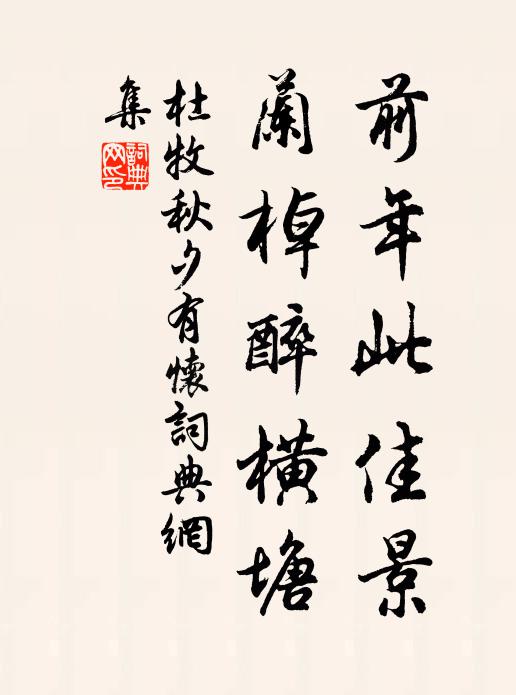 前年此佳景
蘭棹醉橫塘
杜牧秋夕有懷詞典網
集
詞典網印